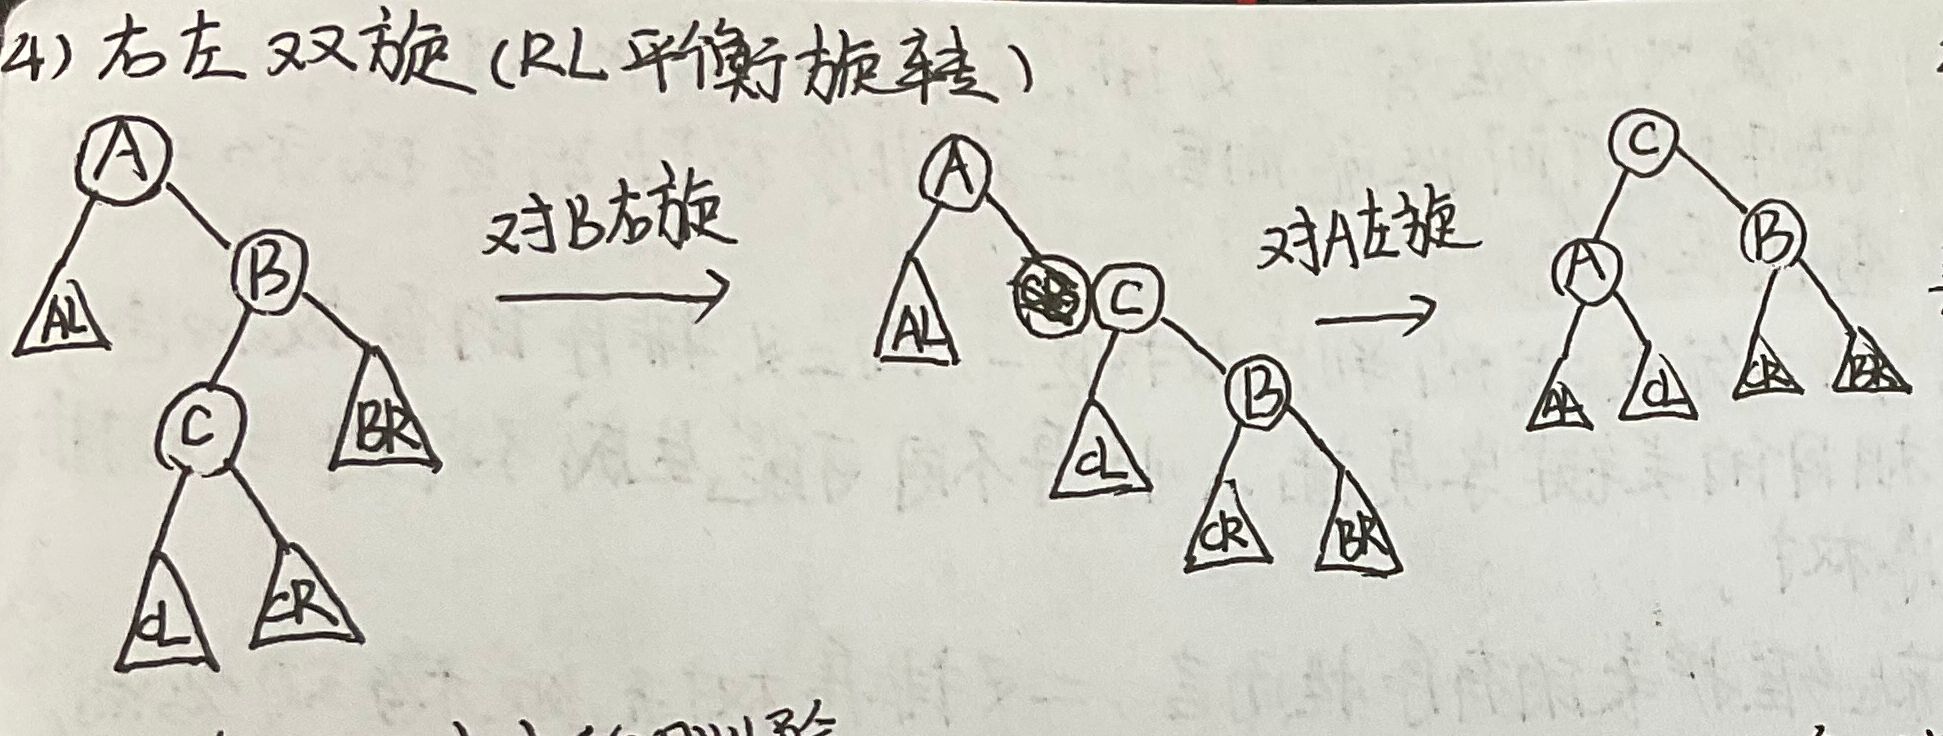 4) 右左双旋(RL平衡旋转)
A
B
AL
C
BR
CL
CR
对B右旋
A
AL
C
B
CL
CR
BR
对A左旋
C
A
B
AA
CL
CR
BR